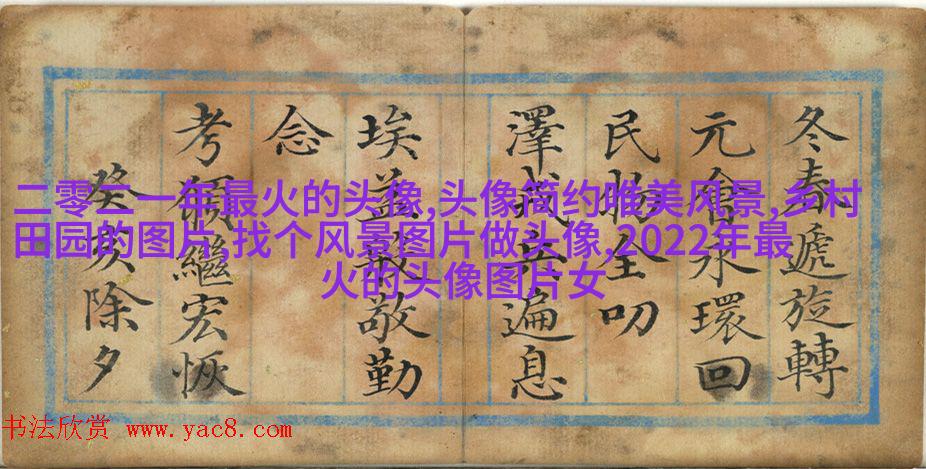 冬春遞旋轉
元會永環回
民物全叨
澤戎兵遍息
埃益殷敬勤
念
考願繼宏恢
癸亥除夕
二零二一年最火的头像,头像简约唯美风景,乡村
田园的图片,找个风景图片做头像,2022年最
火的头像图片女
书法欣赏 www.yac8.com